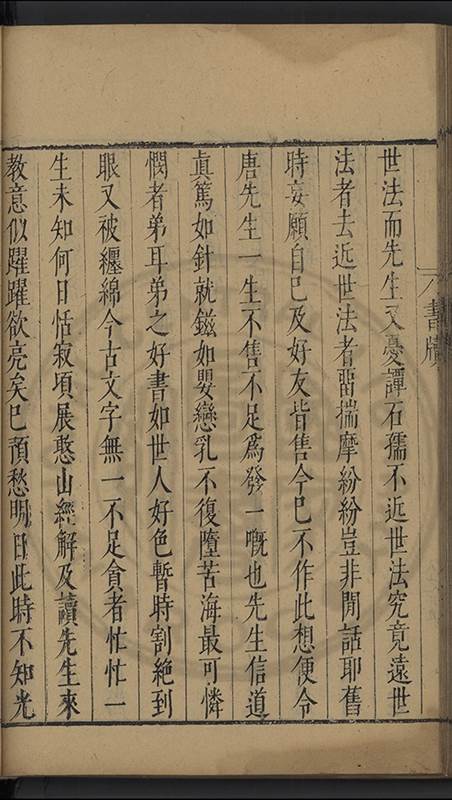 書牘
世法而先生又憂譚石孺不近世法究竟遠世
法者去近世法者留揣摩紛紛豈非閒話耶舊
時妄願自已及好友皆售今已不作此想便令
唐先生一生不售不足爲發一嘅也先生信道
眞篤如針就鎡如嬰戀乳不復墮苦海最可憐
憫者弟耳弟之好書如世人好色暫時割絶到
眼又被纏綿今古文字無一不足貪者忙忙一
生未知何日恬寂項展憨山經解及讀先生來
教意似躍躍欲亮矣已預愁明日此時不知光